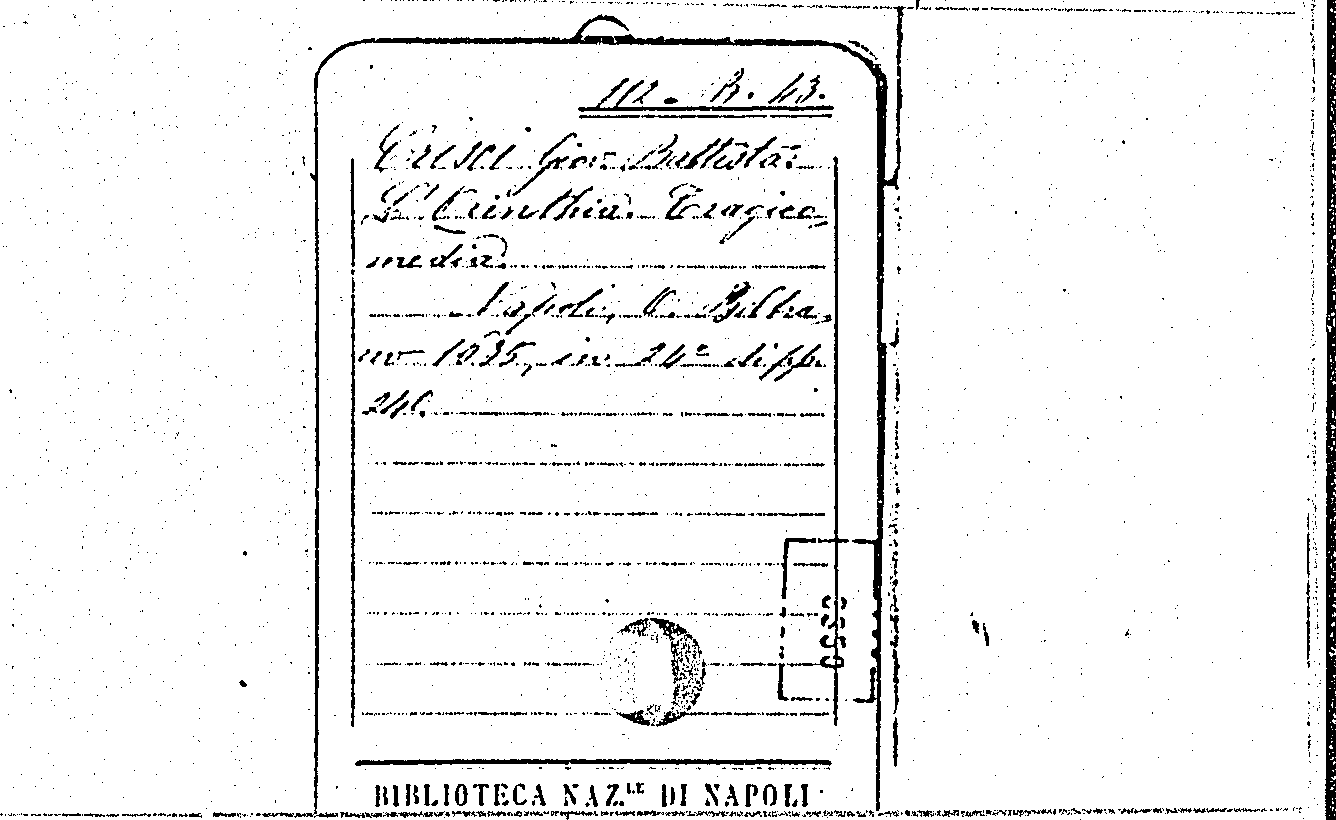 112. B. 43.
Crisci Giov. Battista
L'Orinthia. Tragico,
media.
Napoli, O. Beltra,
no 1635, in 24º di pp.
246.
BIBLIOTECA NAZ.LE DI NAPOLI